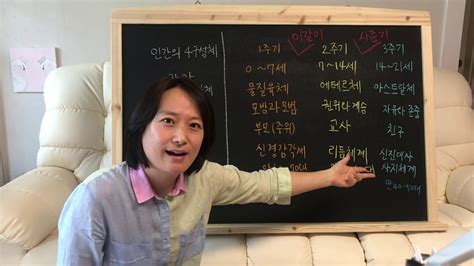 인간의 4구성체
이갈이 사춘기
1주기 2주기 3주기
0~7세 7~14세 14~21세
물질육체 에테르체 아스트랄체
모방과 모범 권위와 계승 자유와 존중
부모(주위) 교사 친구
신경감각계 리듬체계 신진대사
사지체계
만 40~50대